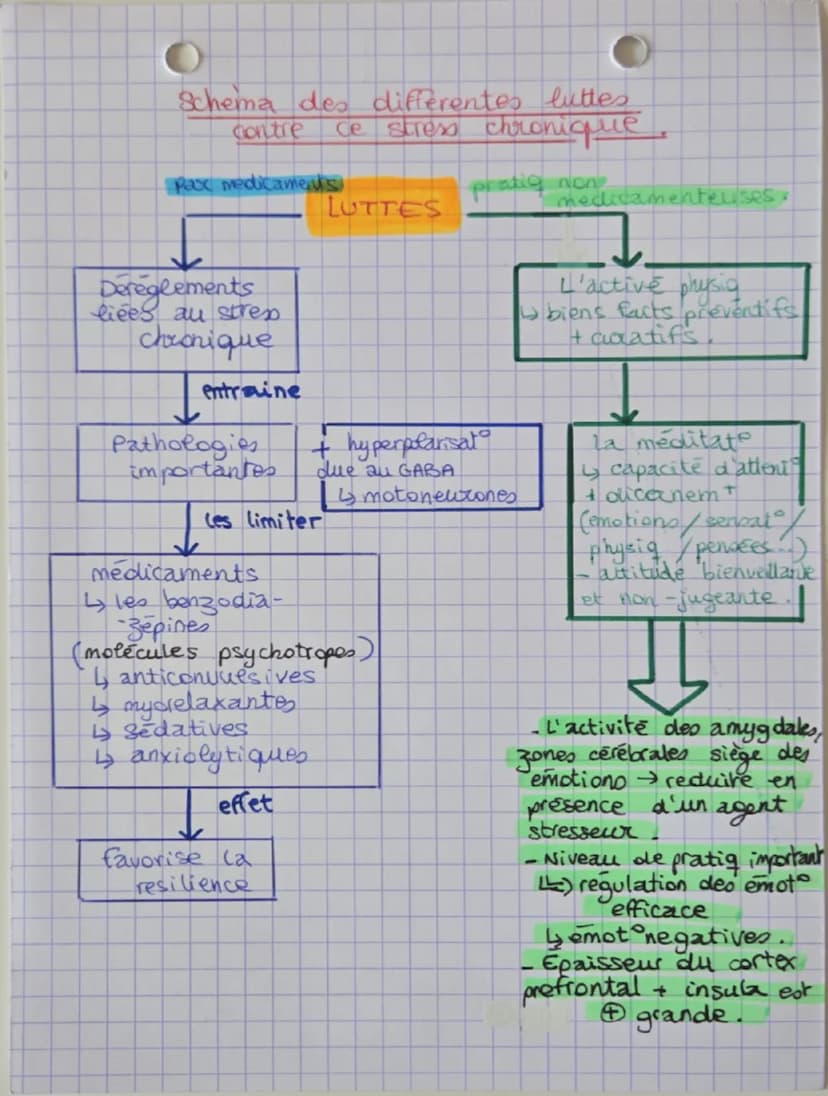 Schema des différentes luttes
contre ce stress chronique.
par medicaments
LUTTES
pratiq non
medicamenteuses.
Déréglements
liées au stress
chronique
entraine
Pathologies
importantes
+ hyperplarisat°
due au GABA
↳ motoneurones
les limiter
médicaments
↳ les benzodia-
-zépines
(molécules psychotropes)
↳ anticonvulsives
↳ myorelaxantes
↳ sédatives
↳ anxiolytiques
effet
favorise la
resilience
L'activé physiq
↳ biens faits préventifs
+ curatifs.
la méditat°
↳ capacité d'attent°
+ dicernem^t
(emotions/sensat°/
physiq/pensées...)
- attitude bienveillante
et non-jugeante.
- L'activité des amygdales,
zones cérébrales siège des
émotions → reduire en
présence d'un agent
stresseur.
- Niveau de pratiq important
↳ régulation des émot°
efficace
↳ émot° negatives.
- Épaisseur du cortex
prefrontal + insula est
⊕ grande.